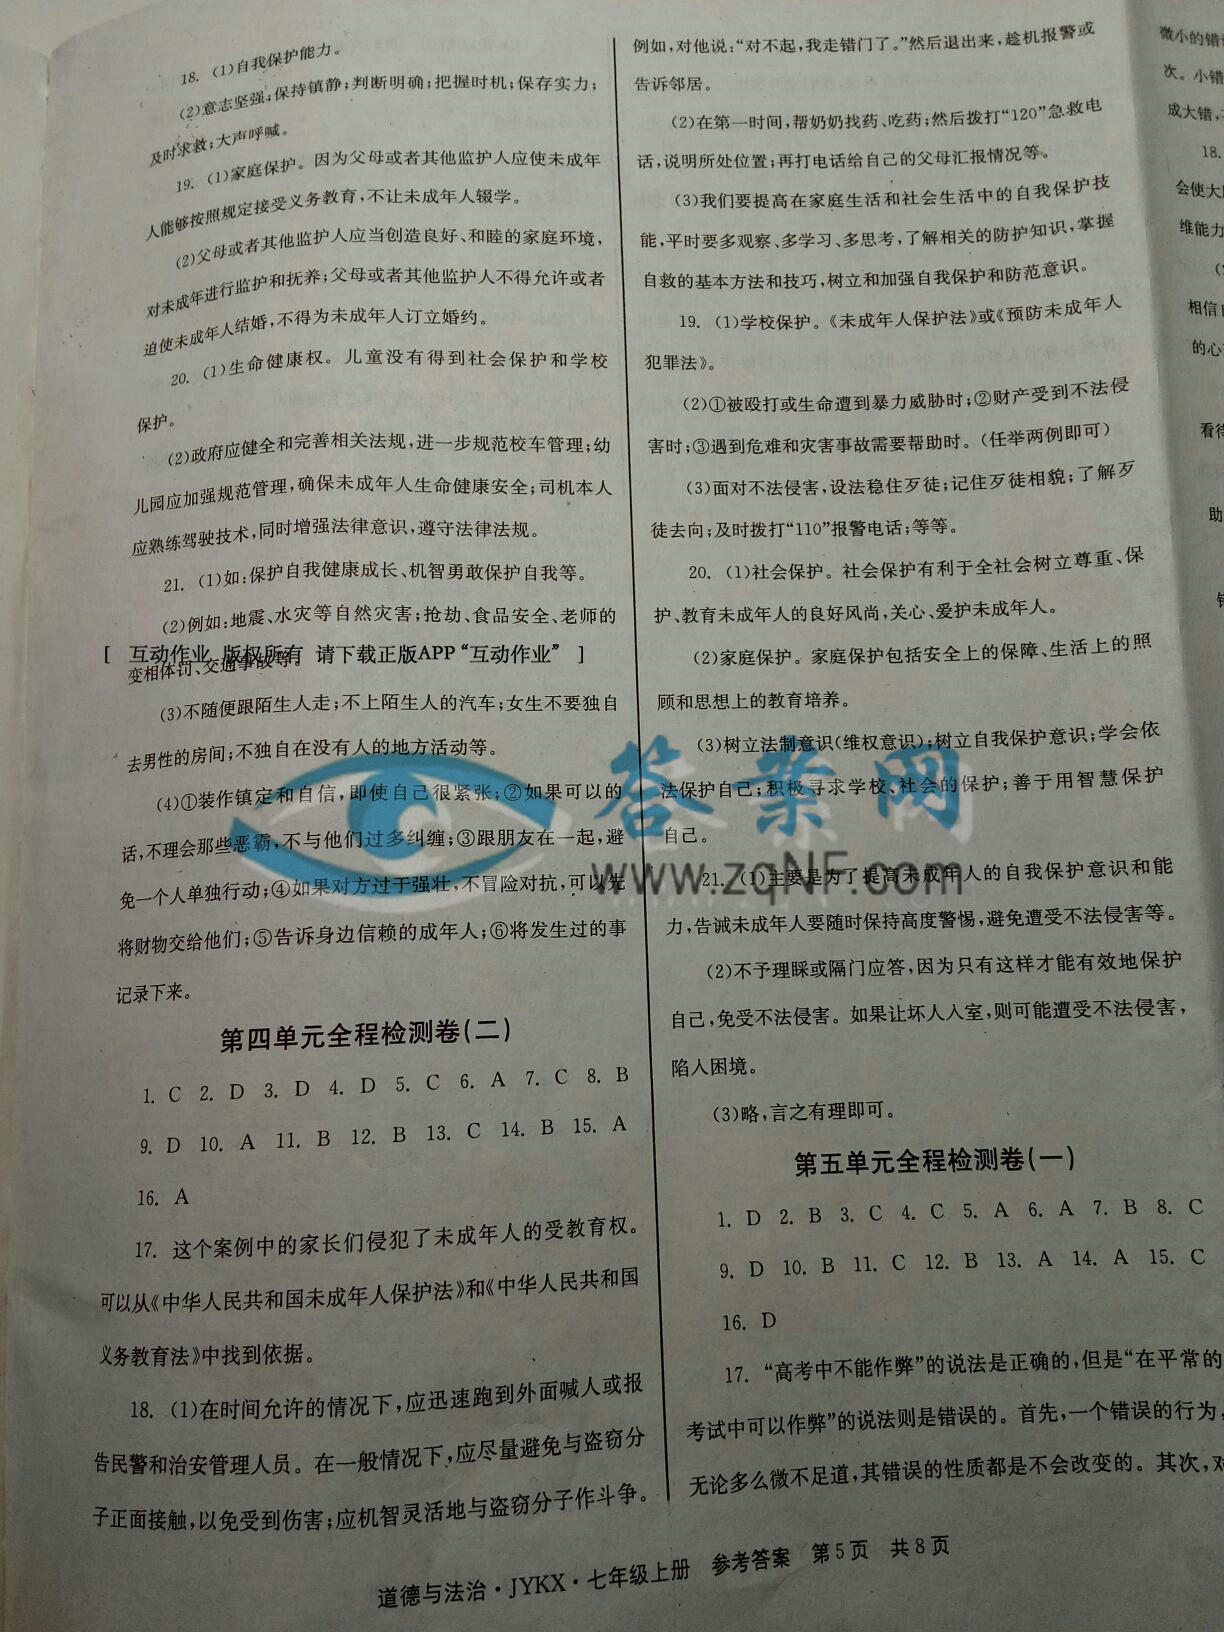 18. (1)自我保护能力。
(2)意志坚强;保持镇静;判断明确;把握时机;保存实力;
及时求救;大声呼喊。
19. (1)家庭保护。因为父母或者其他监护人应使未成年
人能够按照规定接受义务教育,不让未成年人辍学。
(2)父母或者其他监护人应当创造良好、和睦的家庭环境,
对未成年进行监护和抚养;父母或者其他监护人不得允许或者
迫使未成年人结婚,不得为未成年人订立婚约。
20. (1)生命健康权。儿童没有得到社会保护和学校
保护。
(2)政府应健全和完善相关法规,进一步规范校车管理;幼
儿园应加强规范管理,确保未成年人生命健康安全;司机本人
应熟练驾驶技术,同时增强法律意识,遵守法律法规。
21. (1)如:保护自我健康成长、机智勇敢保护自我等。
(2)例如:地震、水灾等自然灾害;抢劫、食品安全、老师的
[ 互动作业 版权所有 请下载正版APP“互动作业” ]
变相体罚、交通事故等。
(3)不随便跟陌生人走;不上陌生人的汽车;女生不要独自
去男性的房间;不独自在没有人的地方活动等。
(4)①装作镇定和自信,即使自己很紧张;②如果可以的
话,不理会那些恶霸,不与他们过多纠缠;③跟朋友在一起,避
免一个人单独行动;④如果对方过于强壮,不冒险对抗,可以先
将财物交给他们;⑤告诉身边信赖的成年人;⑥将发生过的事
记录下来。
第四单元全程检测卷(二)
1. C 2. D 3. D 4. D 5. C 6. A 7. C 8. B
9. D 10. A 11. B 12. B 13. C 14. B 15. A
16. A
17. 这个案例中的家长们侵犯了未成年人的受教育权。
可以从《中华人民共和国未成年人保护法》和《中华人民共和国
义务教育法》中找到依据。
18. (1)在时间允许的情况下,应迅速跑到外面喊人或报
告民警和治安管理人员。在一般情况下,应尽量避免与盗窃分
子正面接触,以免受到伤害;应机智灵活地与盗窃分子作斗争。
例如,对他说:“对不起,我走错门了。”然后退出来,趁机报警或
告诉邻居。
(2)在第一时间,帮奶奶找药、吃药;然后拨打“120”急救电
话,说明所处位置;再打电话给自己的父母汇报情况等。
(3)我们要提高在家庭生活和社会生活中的自我保护技
能,平时要多观察、多学习、多思考,了解相关的防护知识,掌握
自救的基本方法和技巧,树立和加强自我保护和防范意识。
19. (1)学校保护。《未成年人保护法》或《预防未成年人
犯罪法》。
(2)①被殴打或生命遭到暴力威胁时;②财产受到不法侵
害时;③遇到危难和灾害事故需要帮助时。(任举两例即可)
(3)面对不法侵害,设法稳住歹徒;记住歹徒相貌;了解歹
徒去向;及时拨打“110”报警电话;等等。
20. (1)社会保护。社会保护有利于全社会树立尊重、保
护、教育未成年人的良好风尚,关心、爱护未成年人。
(2)家庭保护。家庭保护包括安全上的保障、生活上的照
顾和思想上的教育培养。
(3)树立法制意识(维权意识);树立自我保护意识;学会依
法保护自己;积极寻求学校、社会的保护;善于用智慧保护
自己。
答案网
www.zqNF.com
21. (1)主要是为了提高未成年人的自我保护意识和能
力,告诫未成年人要随时保持高度警惕,避免遭受不法侵害等。
(2)不予理睬或隔门应答,因为只有这样才能有效地保护
自己,免受不法侵害。如果让坏人入室,则可能遭受不法侵害,
陷入困境。
(3)略,言之有理即可。
第五单元全程检测卷(一)
1. D 2. B 3. C 4. C 5. A 6. A 7. B 8. C
9. D 10. B 11. C 12. B 13. A 14. A 15. C
16. D
17. “高考中不能作弊”的说法是正确的,但是“在平常的
考试中可以作弊”的说法则是错误的。首先,一个错误的行为,
无论多么微不足道,其错误的性质都是不会改变的。其次,对
微小的错
次。小错
成大错,
18.
会使大
维能力
相信
的心
看待
助
道德与法治·JYKX·七年级上册 参考答案 第5页 共8页